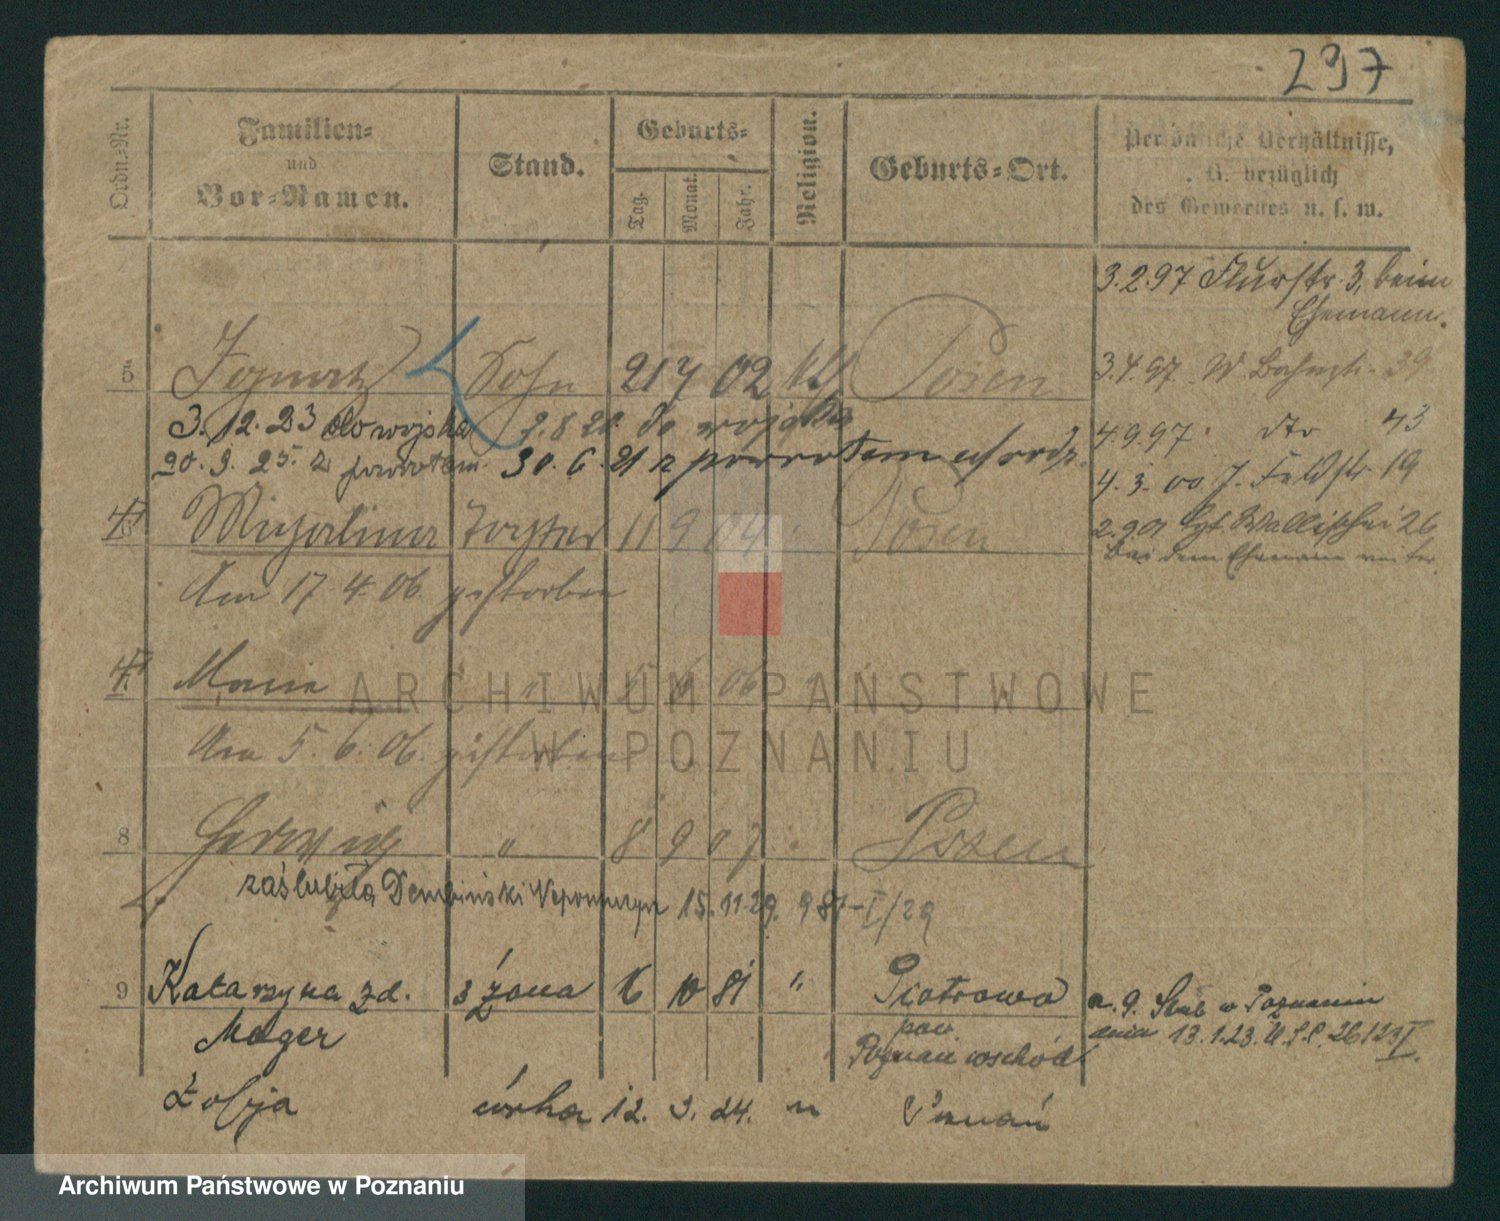 297
Ordn.-Nr.
Familien-
und
Vor-Namen.
Stand.
Geburts-
Tag.
Monat.
Jahr.
Religion.
Geburts-Ort.
Persönliche Verhältnisse,
z. B. bezüglich
des Gewerbes u. s. w.
3.2.97 Flurstr. 3, beim
Ehemann.
5 Ignatz Sohn 21 7 02 kth Posen
3.4.97 W 39
3.12.23 do wojska 2.8.20. do wojska
4.9.97 dto 43
20.3.25. z powrotem 30.6.21 z powrotem
4.3.00 Feldstr 19
6 Michalina Tochter 11 9 04 " Posen
2.9.01 Wallischei 26
bei dem Ehemann weiter.
Am 17.4.06. gestorben
7 Marie " 5 6 06
Am 5.6.06. gestorben
8 Hedwig " 8 9 07 " Posen
zaślubiła Dembiński Nepomucyn 15.11.29. 987-I/29
9 Katarzyna zd. 3 żona 6 10 81 " Piotrowo
n. 9. Ślub w Poznaniu
Mager pow. dnia 13.1.23. U.S.P. 26/23 I.
Poznań wschód
Zofja córka 12. 3. 24. " Poznań
ARCHIWUM PAŃSTWOWE
W POZNANIU
Archiwum Państwowe w Poznaniu